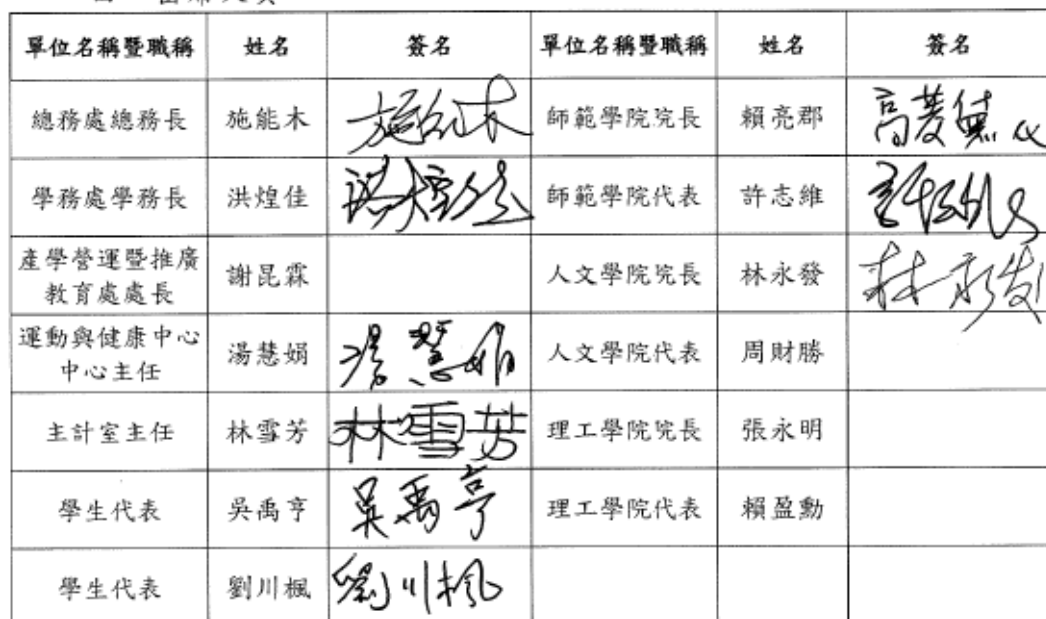 單位名稱暨職稱 姓名 簽名 單位名稱暨職稱 姓名 簽名
總務處總務長 施能木 施能木 師範學院院長 賴亮郡
學務處學務長 洪煌佳 洪煌佳 師範學院代表 許志維
產學營運暨推廣
教育處處長 謝昆霖 人文學院院長 林永發 林永发
運動與健康中心
中心主任 湯慧娟 湯慧娟 人文學院代表 周財勝
主計室主任 林雪芳 林雪芳 理工學院院長 張永明
學生代表 吳禹亨 吳禹亨 理工學院代表 賴盈勳
學生代表 劉川楓 劉川楓